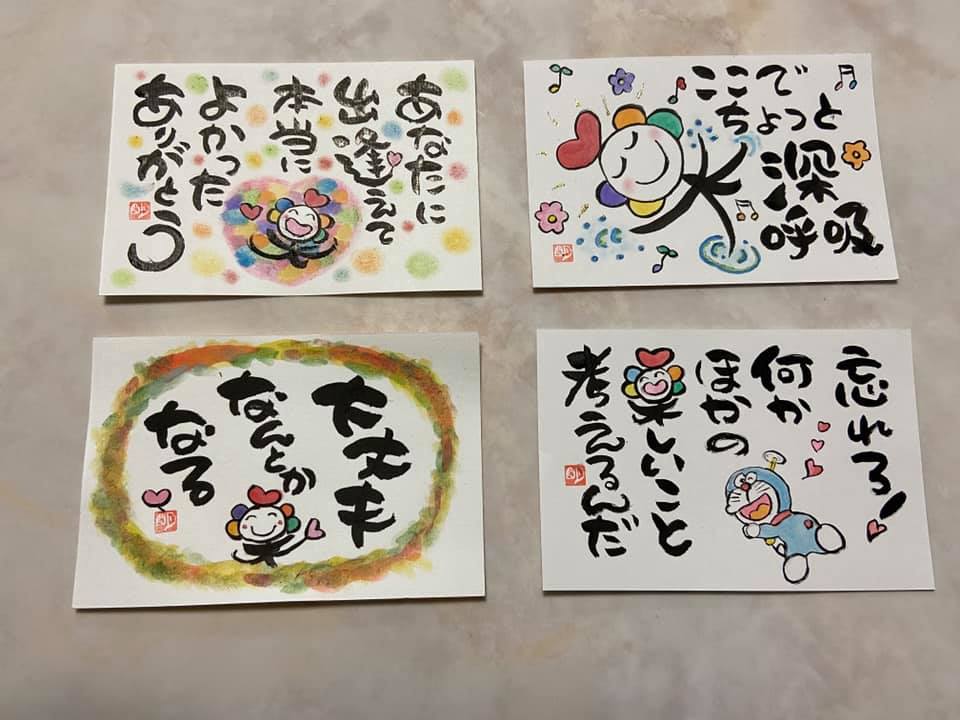 あなたに
出逢えて
本当に
よかった
ありがとう
ここで
ちょっと
深呼吸
大丈夫
なんとか
なる
忘れろ!
何か
ほかの
楽しいこと
考えるんだ